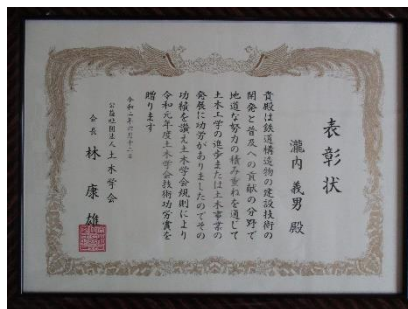 表彰状
瀧内 義男 殿
貴殿は鉄道構造物の建設技術の
開発と普及への貢献の分野で
地道な努力の積み重ねを通じて
土木工学の進歩または土木事業の
発展に功労がありましたのでその
功績を讃え土木学会規則により
令和元年度土木学会技術功労賞を
贈ります
令和二年六月十二日
公益社団法人 土木学会
会長 林 康雄